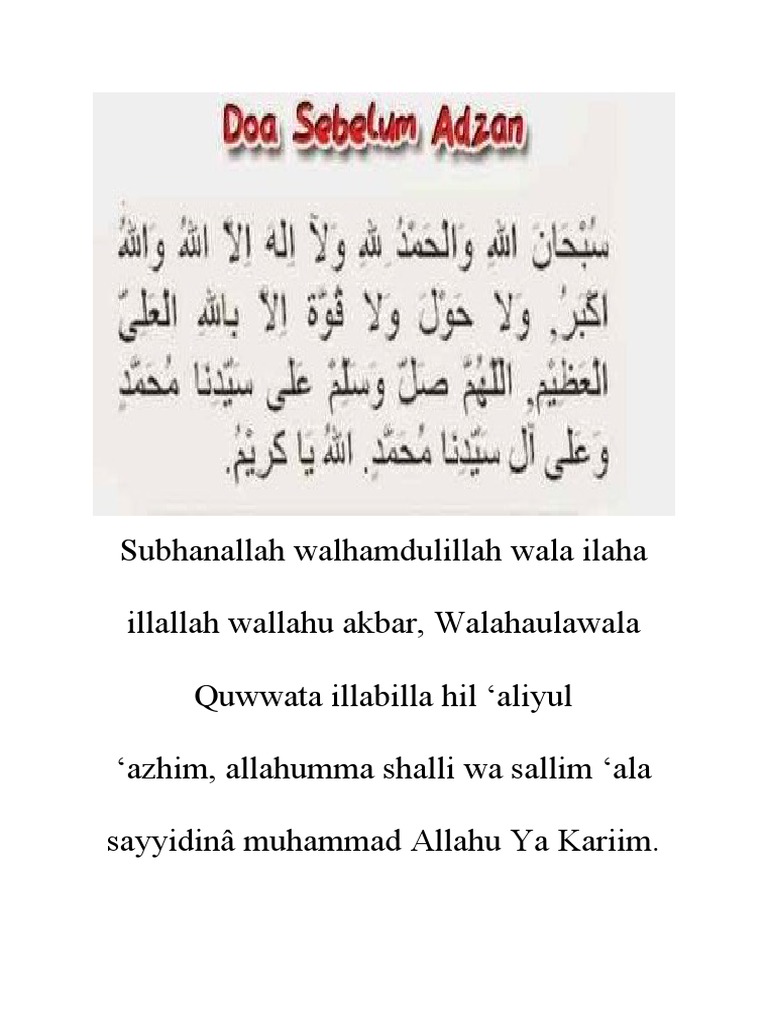 Doa Sebelum Adzan
سُبْحَانَ اللهِ وَالْحَمْدُ لِلهِ وَلَآ اِلٰهَ اِلاَّ اللهُ وَاللهُ
اَكْبَرُ, وَلَا حَوْلَ وَلَا قُوَّةَ اِلاَّ بِاللهِ الْعَلِىِّ
الْعَظِيْمِ, اَللّٰهُمَّ صَلِّ وَسَلِّمْ عَلَى سَيِّدِنَا مُحَمَّدٍ
وَعَلَى آلِ سَيِّدِنَا مُحَمَّدٍ. اَللهُ يَا كَرِيْمُ.
Subhanallah walhamdulillah wala ilaha
illallah wallahu akbar, Walahaulawala
Quwwata illabilla hil ‘aliyul
‘azhim, allahumma shalli wa sallim ‘ala
sayyidinâ muhammad Allahu Ya Kariim.